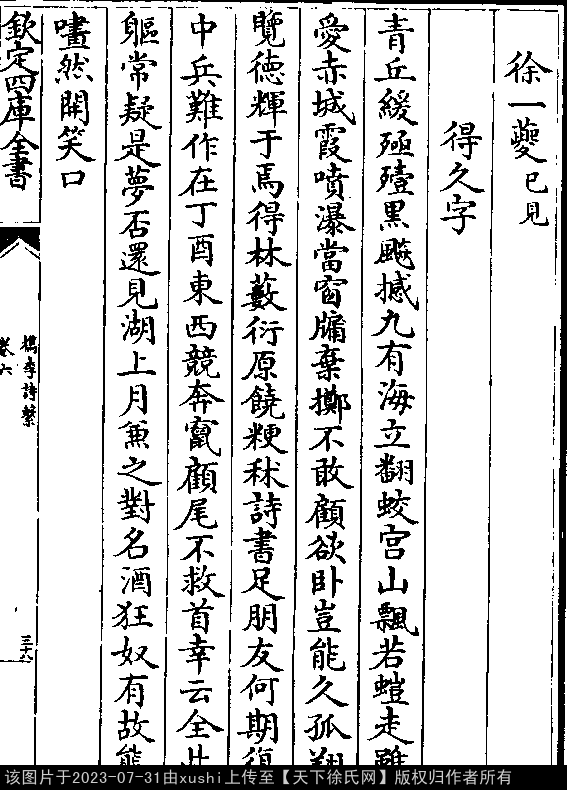 徐一夔已見
得久字
青丘緩殛殪黒颷撼九有海立翻蛟宫山飄若螘走雖
愛赤城霞噴瀑當窗牖棄擲不敢顧欲卧豈能久孤翔
覽徳輝于焉得林藪衍原饒粳秫詩書足朋友何期復
中兵難作在丁酉東西競奔竄顧尾不救首幸云全此
軀常疑是夢否還見湖上月兼之對名酒狂奴有故態
嚍然開笑口
欽定四庫全書
檇李詩繫
卷六
三十八
该图片于2023-07-31由xushi上传至【天下徐氏网】版权归作者所有